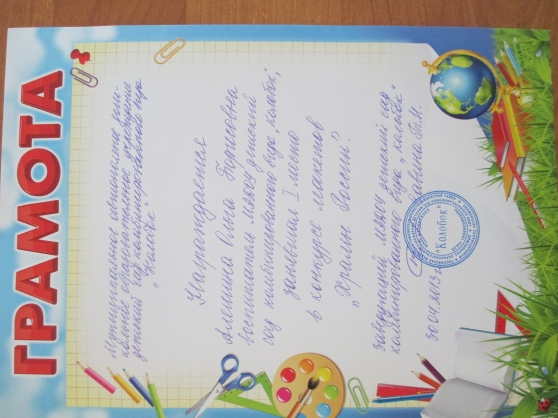 ГРАМОТА
Муниципальное автономное дош-
кольное образовательное учреждение
детский сад комбинированного вида
"Колобок"
Награждается
Алешина Ольга Борисовна
воспитатель МАДОУ детский
сад комбинированного вида "Колобок",
занявшая I место
в конкурсе макетов
"Храмы России".
Заведующий МАДОУ детский сад
комбинированного вида "Колобок"
30.04.2013г.
"Колобок"